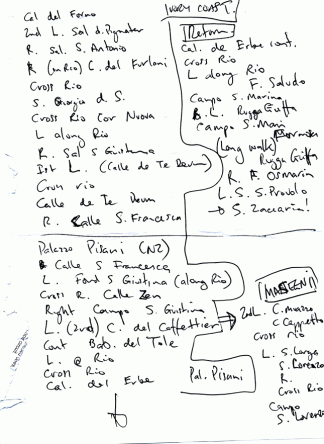 Cal del Forno
2nd L. Sal d. Pignater
R. Sal. S. Antonio
R (en Rio) C. del Furloni
Cross Rio
S. Giorgio d. S.
Cross Rio Cor Nuova
L along Rio
R. Sal S Giustina
1st L. (Calle de Te Deum)
Cross rio
Calle de Te Deum
R. Calle S. Francesca
Palazzo Pisani (N2)
Calle S Francesca
L. Fond S Giustina (along Rio)
Cross R. Calle Zen
Right Campo S. Giustina
L. (2nd) C. del Caffettier
Cont Bab. del Tole
L. @ Rio
Cross Rio
Cal. del Erbe
IVORY COAST.
Return.
Cal. de Erbe cont.
Cross Rio
L along Rio
F. Saludo
Campo S. Marina
L. Rugga Giuffa
Campo S. Mari
(Long walk)
Rugga Giuffa
R. F. Osmarin
L. S. S. Provolo
→ S. Zaccaria!
Pal. Pisani
2nd L. C. Muazzo
C Cappello
Cross rio
L. S. Larga
S. Lorenzo
R.
Cross Rio
Campo
S. Lorenzo